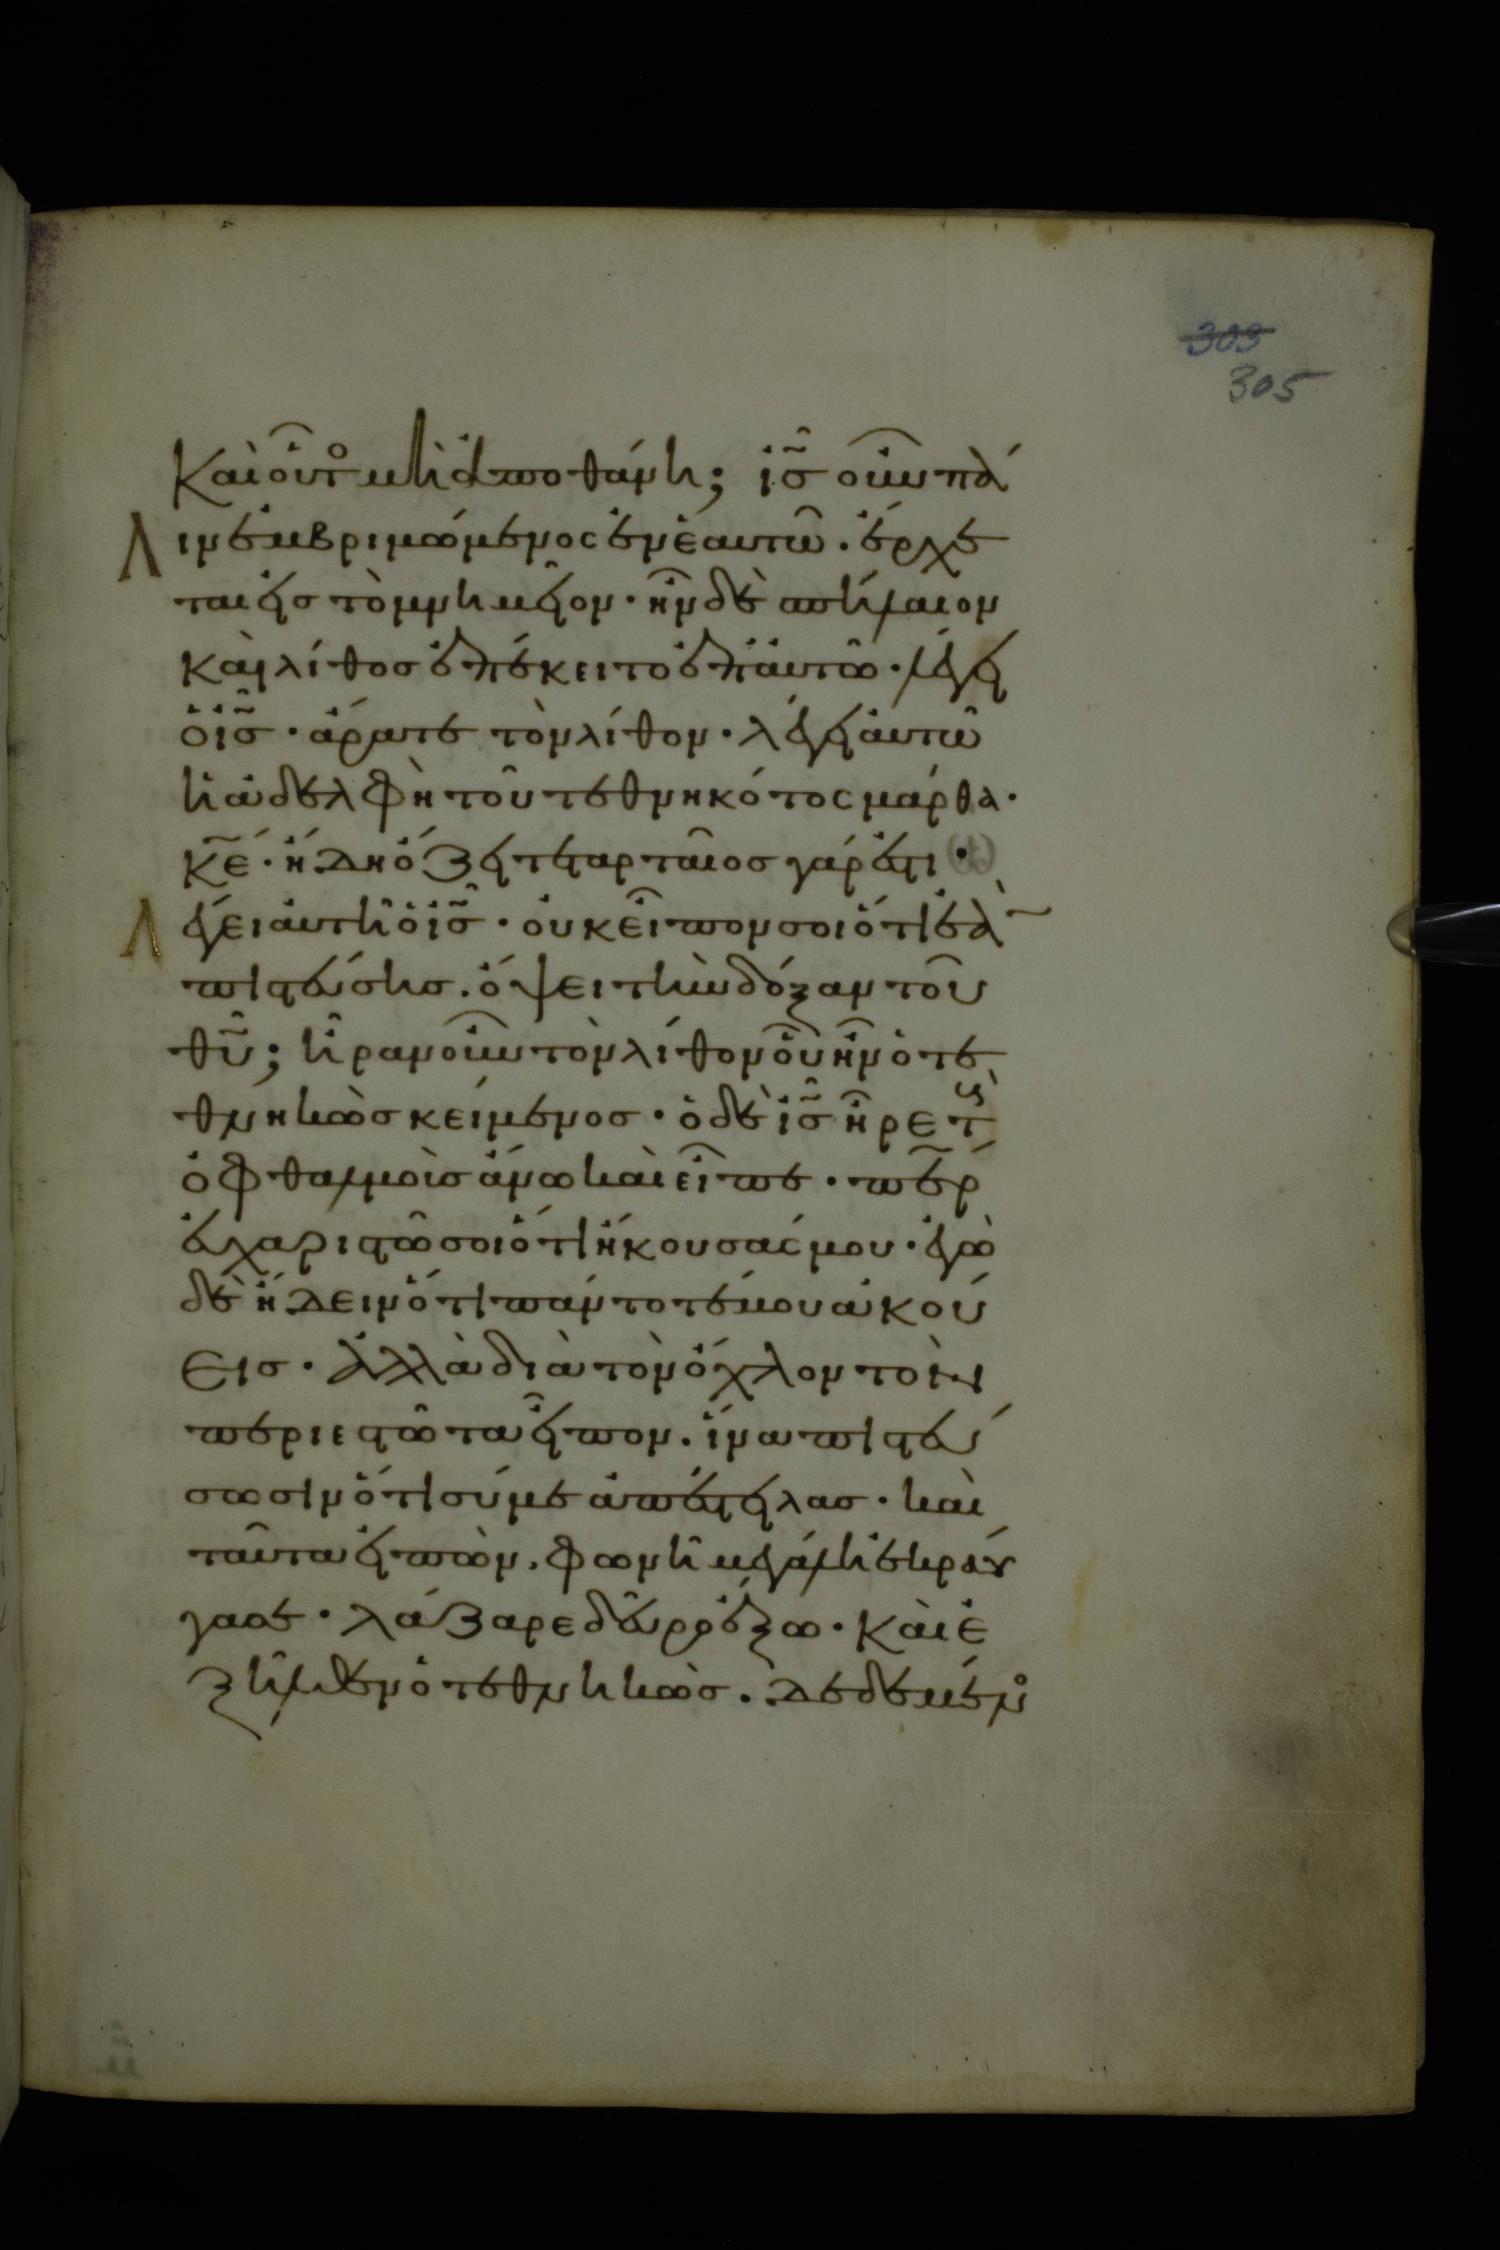 303
305
Καὶ οὗτος μὴ ἀποθάνη; ἰς̃ οὖν πά
λιν ἐμβριμώμενος ἐν ἑαυτῶ. ἔρχε
ται εἰς τὸ μνημεῖον · ἦν δὲ σπήλαιον
καὶ λίθος ἐπέκειτο ἐπ' αὐτῶ · λέγει
ὁ ἰς̃ · ἄρατε τὸν λίθον · λέγει αὐτῶ
ἡ ἀδελφὴ τοῦ τεθνηκότος μάρθα ·
κε̃ · ἤδη ὄζει τεταρταῖος γάρ ἐστι ·
Λέγει αὐτῆ ὁ ἰς̃ · οὐκ εἶπόν σοι ὅτι ἐὰν
πιστεύσης . ὄψει τὴν δόξαν τοῦ
θυ̃; ἦραν οὖν τὸν λίθον οὗ ἦν ὁ τε
θνηκὼς κείμενος · ὁ δὲ ἰς̃ ἦρε τοὺς
ὀφθαλμοὺς ἄνω καὶ εἶπε · περ̃
εὐχαριστῶ σοι ὅτι ἤκουσάς μου · ἐγὼ
δὲ ἤδειν ὅτι πάντοτέ μου ἀκού
εις · ἀλλὰ διὰ τὸν ὄχλον τὸν
περιεστῶτα εἶπον . ἵνα πιστεύ
σωσιν ὅτι σύ με ἀπέστειλας · καὶ
ταῦτα εἰπὼν . φωνῆ μεγάλη ἐκραύ
γασε · λάζαρε δεῦρο ἔξω · καὶ ἐ
ξῆλθεν ὁ τεθνηκὼς . δεδεμένος